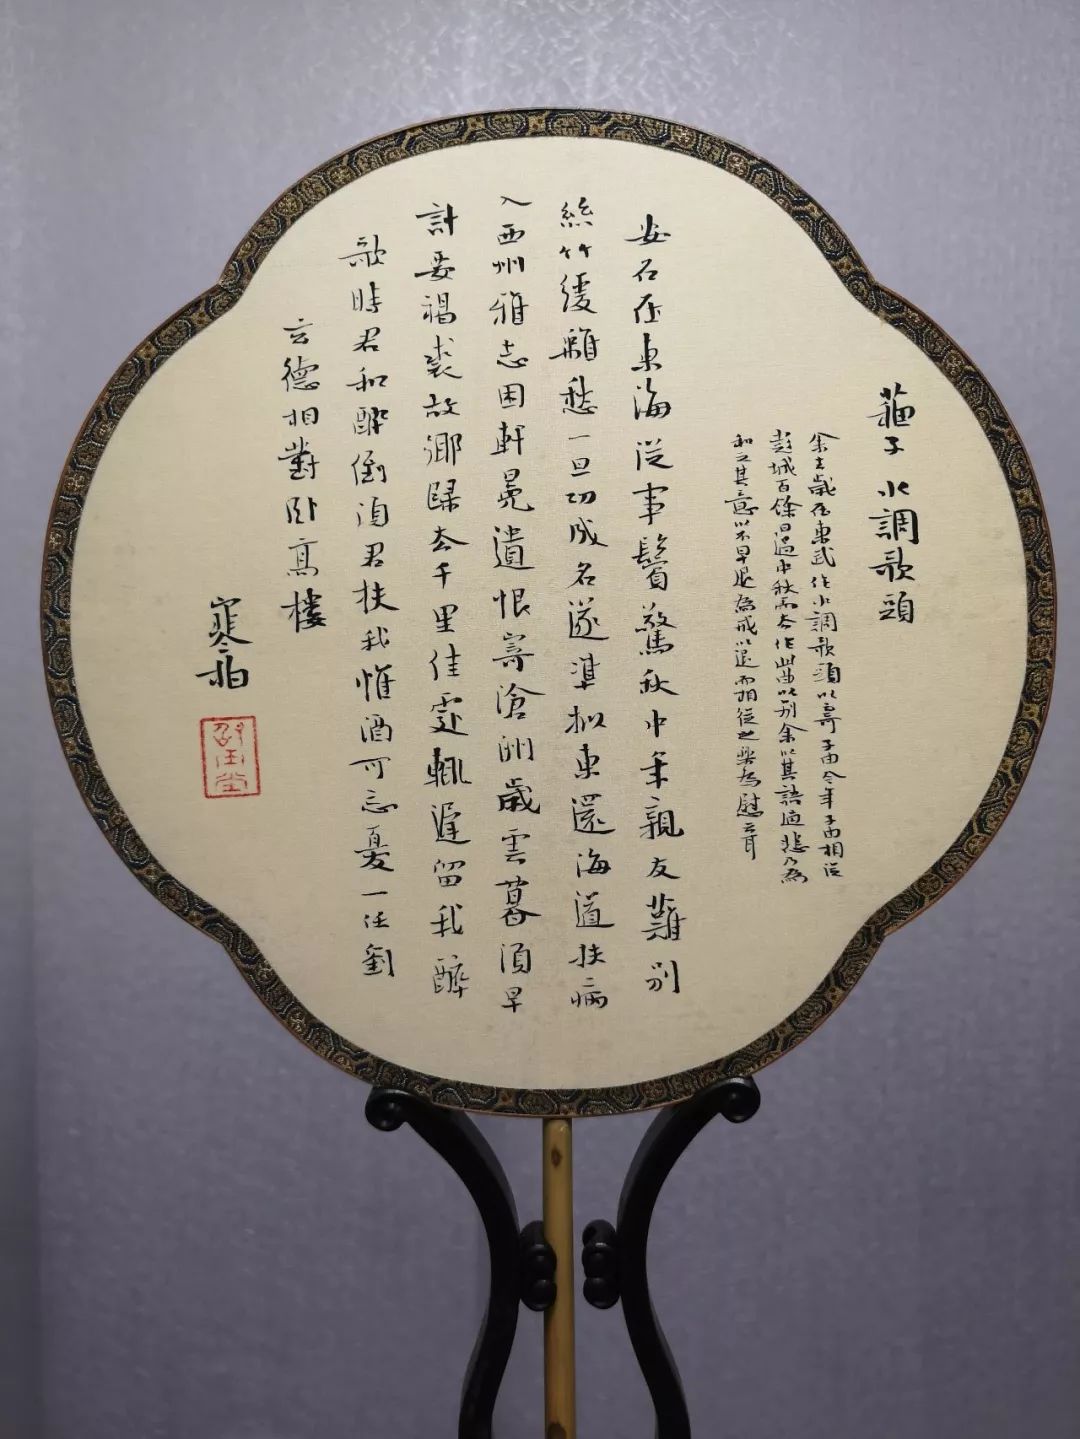 蘓子水調歌頭
余去歲在東武作水調歌頭以寄子由今年子由相從
彭城百餘日過中秋而去作此曲以別余以其語過悲乃為
和之其意以不早退為戒以退而相從之樂為慰云耳
安石在東海從事鬢驚秋中年親友難別
絲竹緩離愁一旦功成名遂準擬東還海道扶病
入西州雅志困軒冕遺恨寄滄洲歲雲暮須早
計要褐裘故鄉歸去千里佳處輒遲留我醉
歌時君和醉倒須君扶我惟酒可忘憂一任劉
玄德相對臥高樓
寒柏